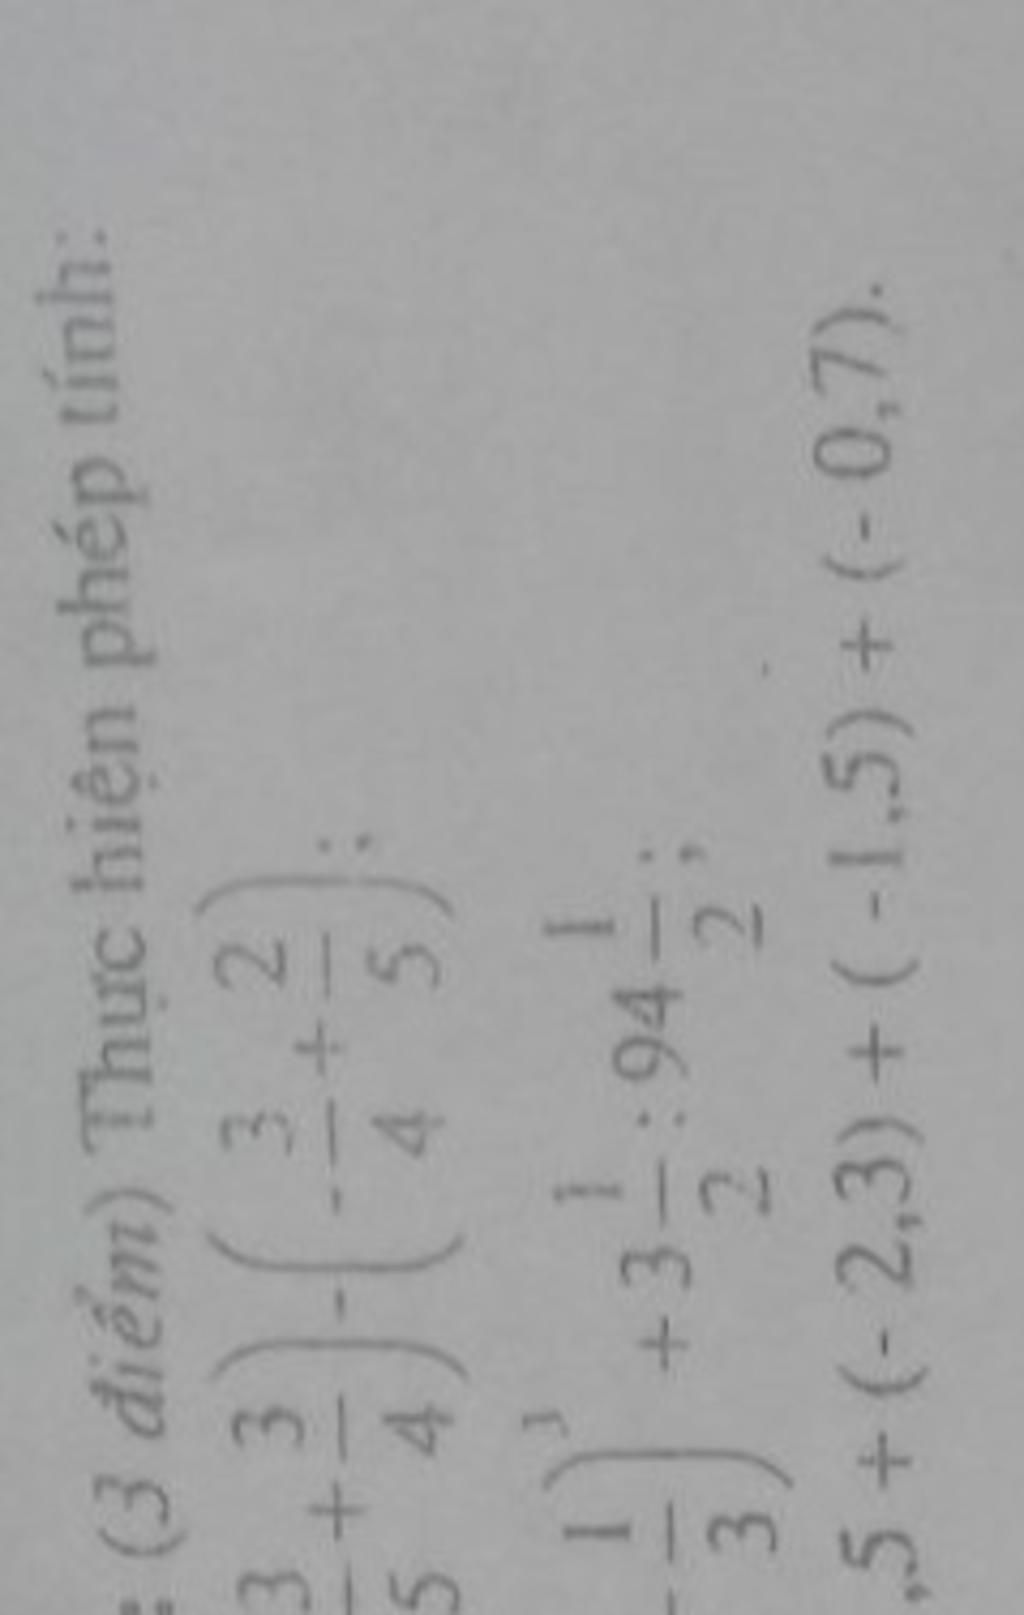 : (3 điểm) Thực hiện phép tính:
3/5 + 3/4) - (- 3/4 + 2/5);
- 1/3)³ + 3 1/2 : 94 1/2 ;
,5 + (- 2,3) + ( -1,5) + (- 0,7).